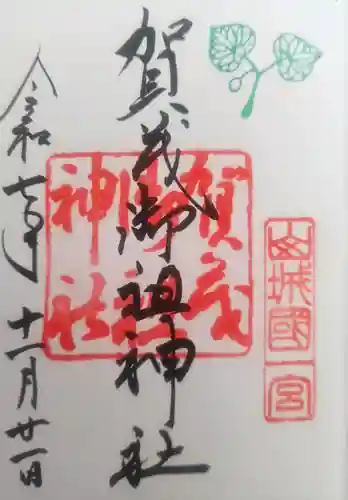 山城國一宮
賀茂御祖神社
賀茂御祖神社
令和七年十一月廿一日